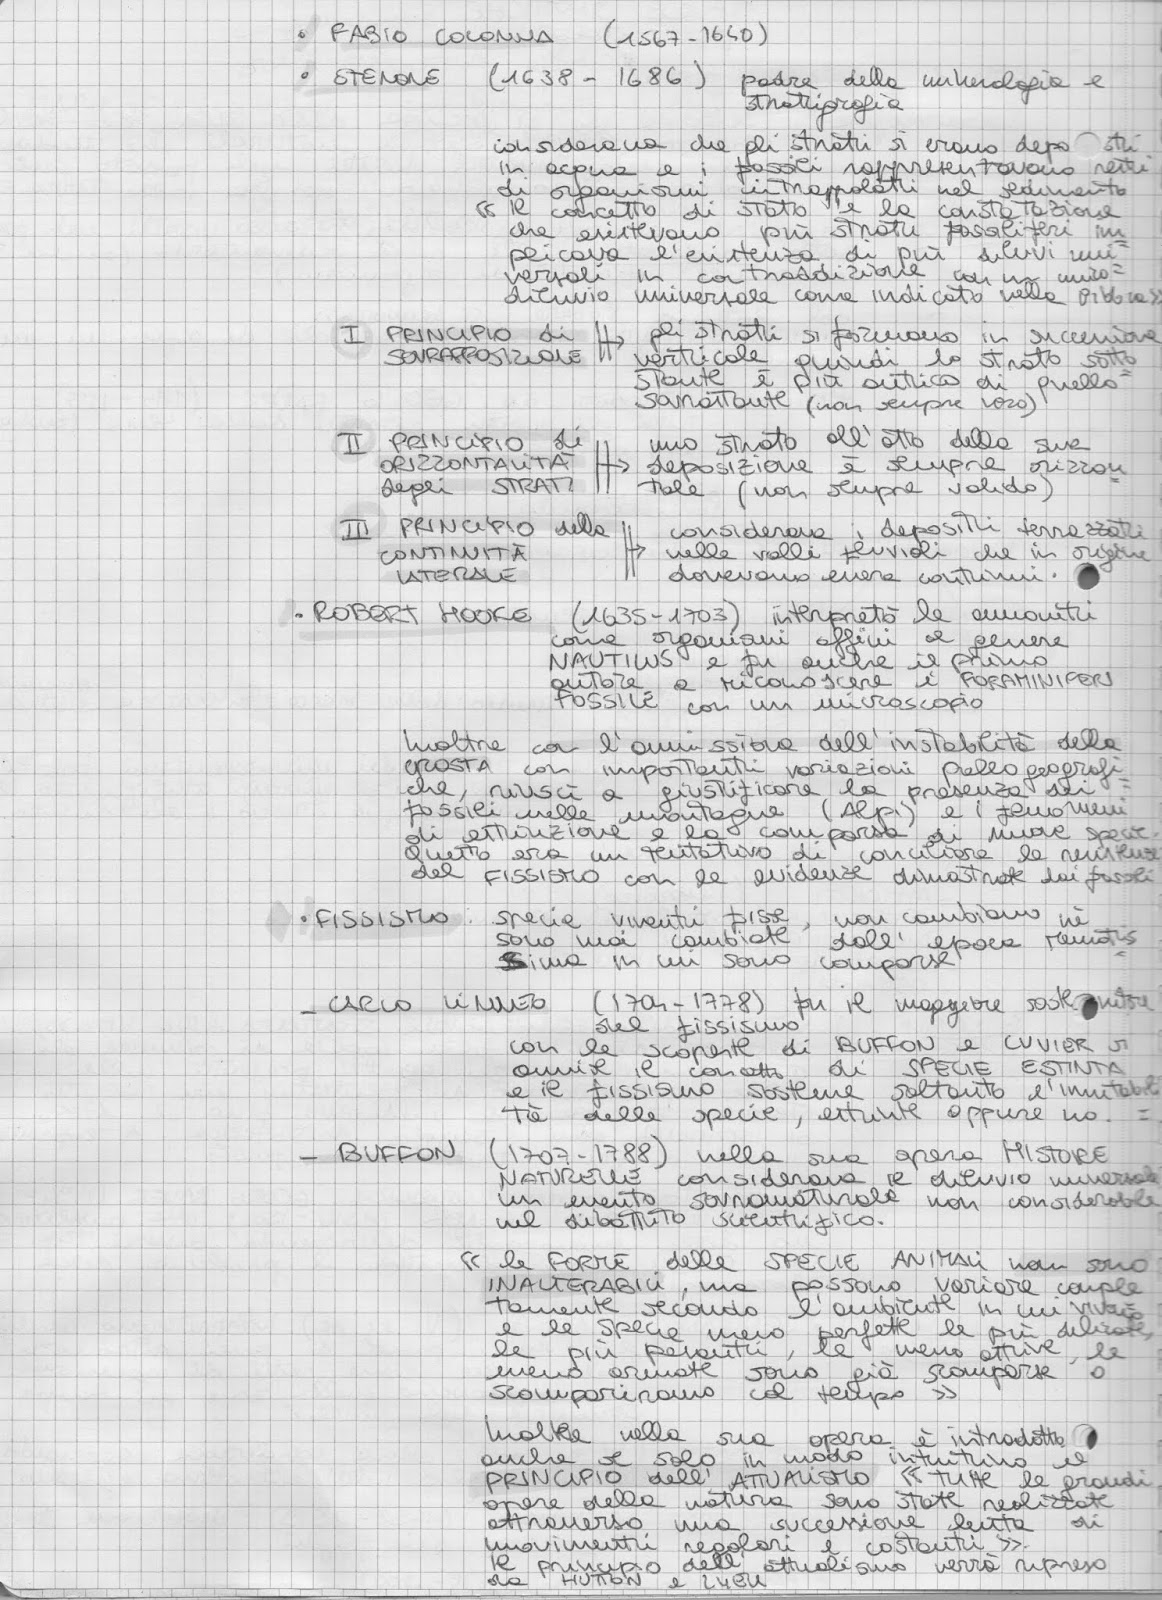 • FABIO COLONNA (1567-1640)
• STENONE (1638 - 1686) padre della minerologia e
stratigrafia
considerava che gli strati si erano depositi
in acqua e i fossili rappresentavano resti
di organismi intrappolati nel sedimento
« il concetto di stato e la constatazione
che esistevano più strati fossiliferi im=
plicava l'esistenza di più diluvi uni=
versali in contraddizione con un unico=
diluvio universale come indicato nella Bibbia »
I PRINCIPIO di SOVRAPPOSIZIONE → gli strati si formano in successione
verticale quindi lo strato sotto=
stante è più antico di quello
sovrastante (non sempre vero)
II PRINCIPIO di ORIZZONTALITÀ degli STRATI → uno strato all'atto della sua
deposizione è sempre orizzon=
tale (non sempre valido)
III PRINCIPIO della CONTINUITÀ LATERALE → considerava i depositi terrazzati
nelle valli fluviali che in origine
dovevano essere continui.
• ROBERT HOOKE (1635-1703) interpretò le ammoniti
come organismi affini al genere
NAUTILUS e fu anche il primo
autore a riconoscere i FORAMINIFERI
FOSSILI con un microscopio
Inoltre con l'ammissione dell'instabilità della
CROSTA con importanti variazioni paleogeografi=
che, riuscì a giustificare la presenza dei
fossili nelle montagne (Alpi) e i fenomeni
di estinzione e la comparsa di nuove specie.
Questo era un tentativo di conciliare la resistenza
del FISSISMO con le evidenze dimostrate dai fossili
• FISSISMO : specie viventi fisse, non cambiano nè
sono mai cambiate dall'epoca remotis=
sima in cui sono comparse
- CARLO LINNEO (1707-1778) fu il maggiore sostenitore
del fissismo
con le scoperte di BUFFON e CUVIER si
ammise il concetto di SPECIE ESTINTA
e il fissismo sostiene soltanto l'immutabili=
tà delle specie, estinte oppure no.
- BUFFON (1707-1788) nella sua opera HISTOIRE
NATURELLE considerava il diluvio universale
un evento sovrannaturale non considerabile
nel dibattito scientifico.
« le FORME delle SPECIE ANIMALI non sono
INALTERABILI, ma possono variare comple
tamente secondo l'ambiente in cui vivono
e le specie meno perfette le più delicate,
le più pesanti, le meno attive, le
meno armate sono già scomparse o
scompariranno col tempo »
Inoltre nella sua opera è introdotto
anche se solo in modo intuitivo il
PRINCIPIO dell'ATTUALISMO « tutte le grandi
opere della natura sono state realizzate
attraverso una successione lenta di
movimenti regolari e costanti ».
Il principio dell'attualismo verrà ripreso
da HUTTON e LYELL